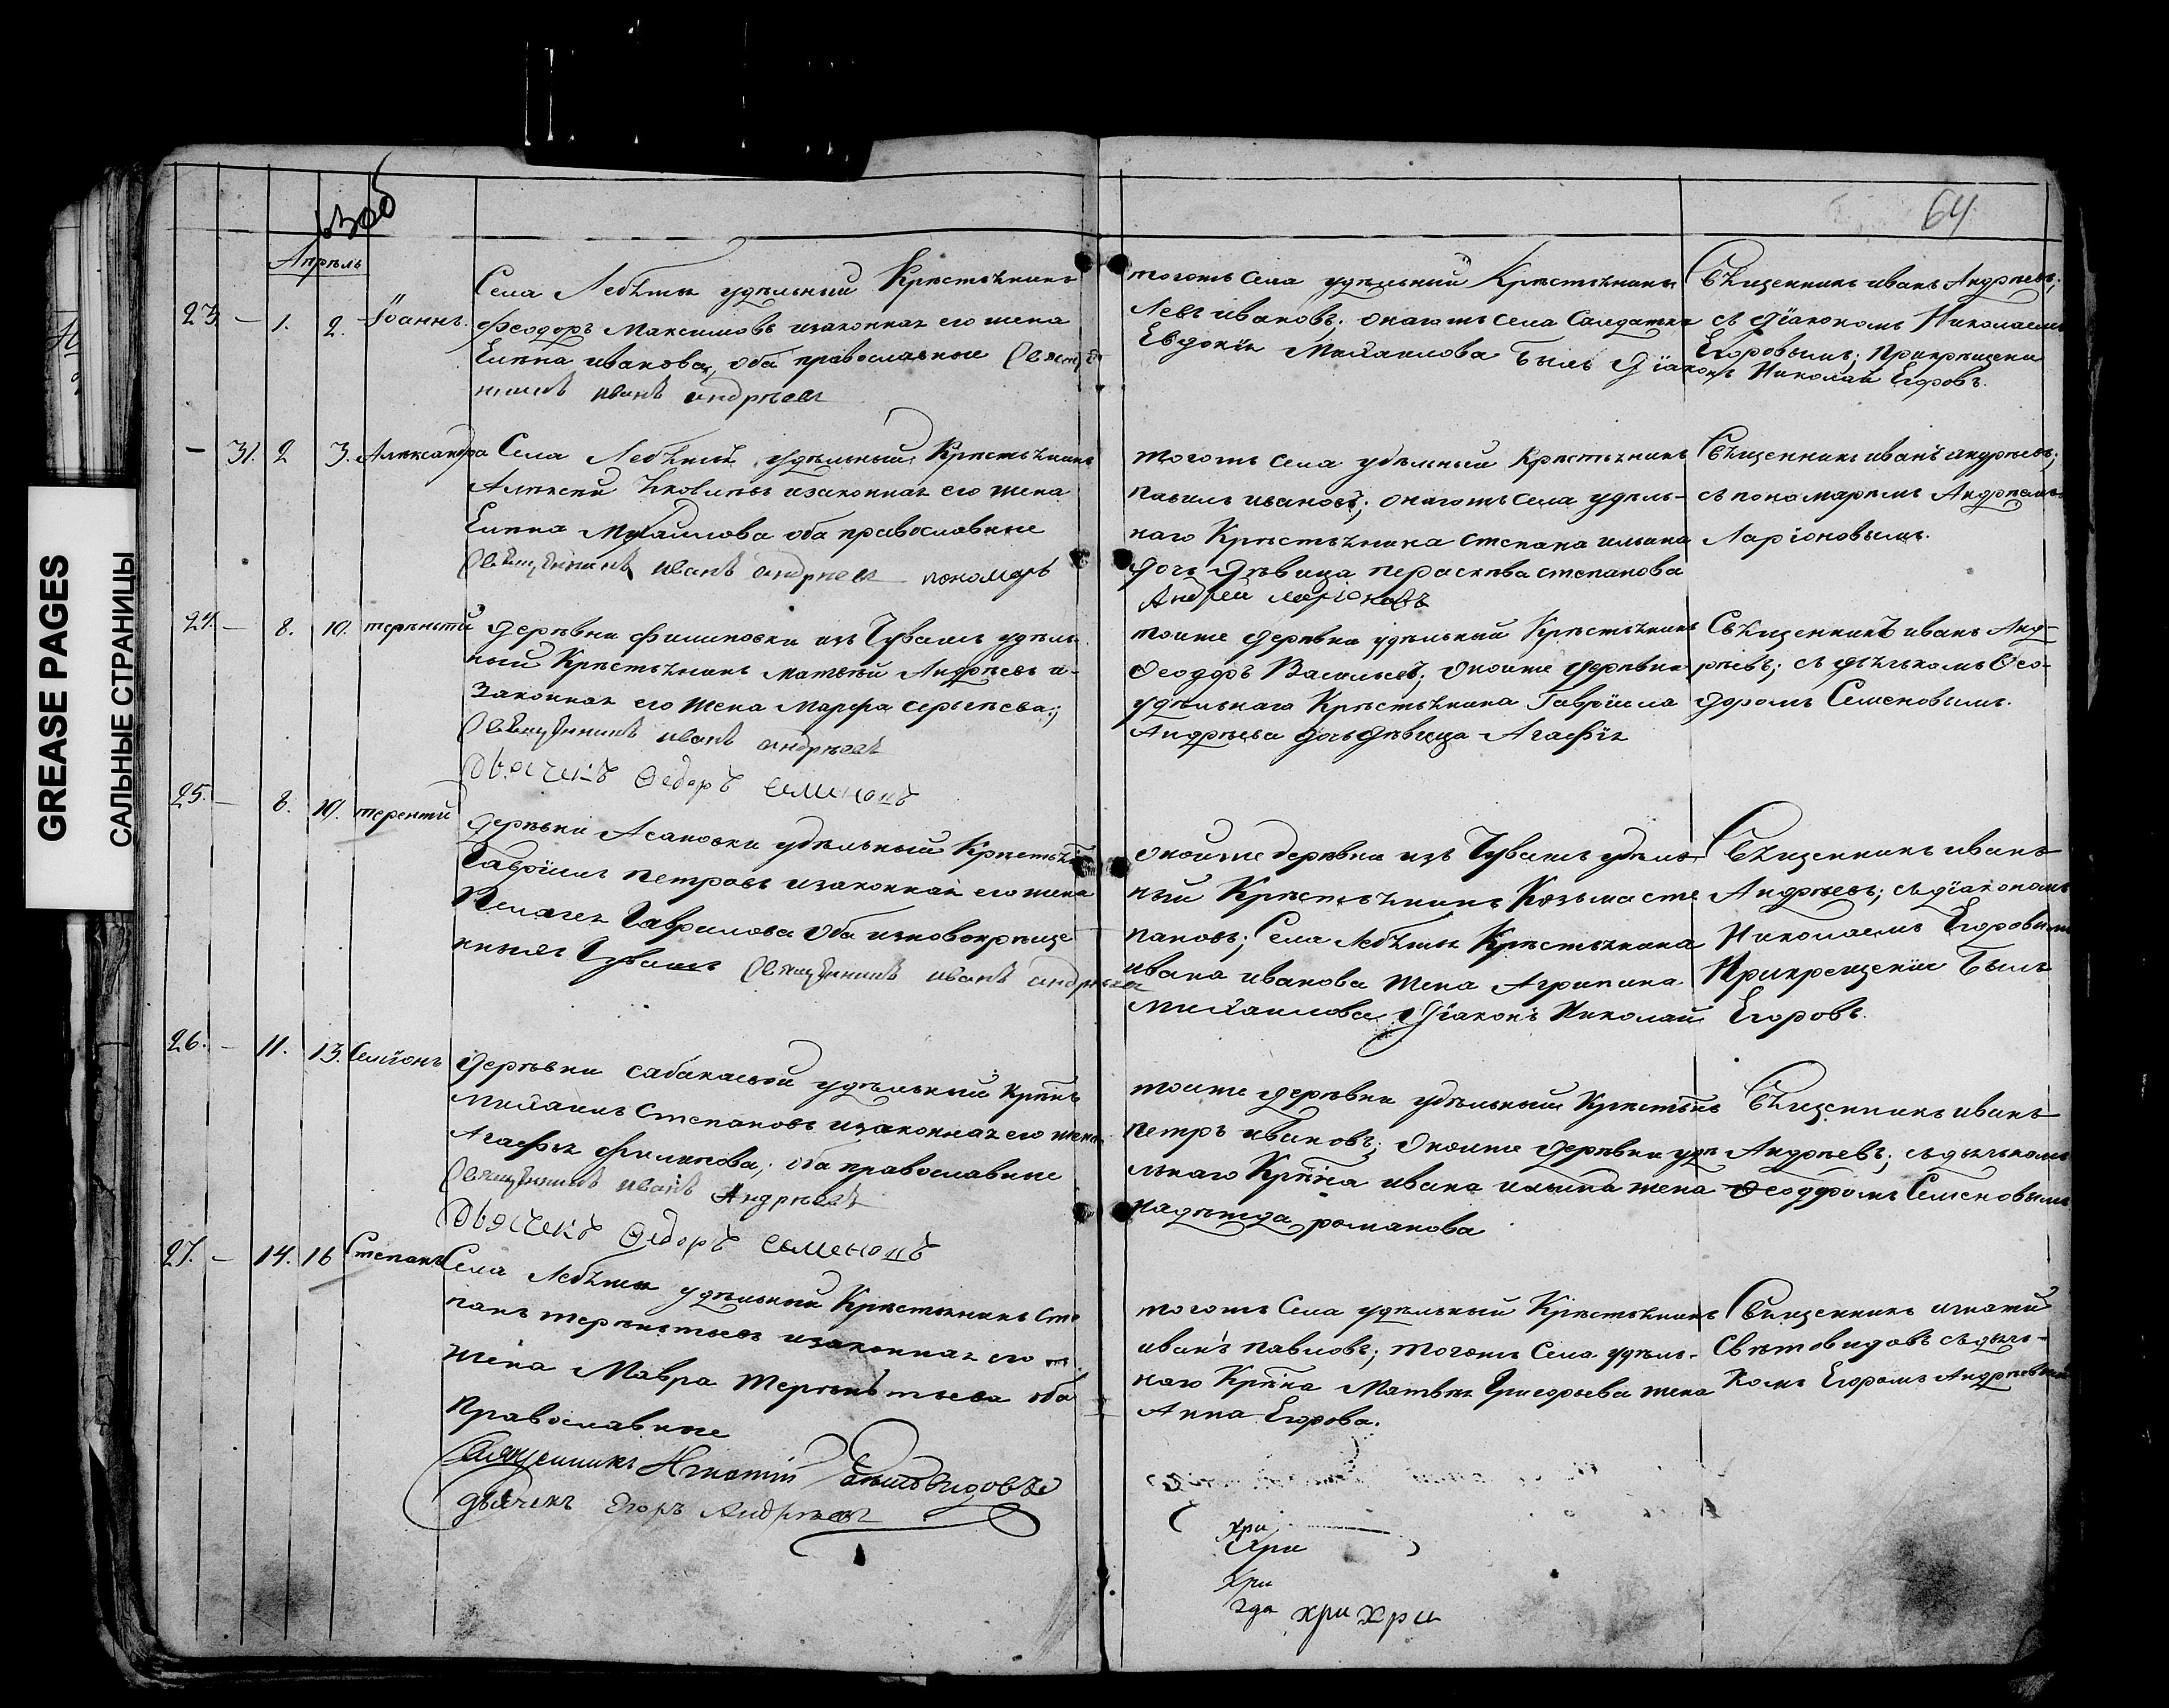 GREASE PAGES
САЛЬНЫЕ СТРАНИЦЫ
64
Апрѣль
23. — 1. 2. Іоаннъ.
Села Лебѣжы удѣльный Крѣстьѣнинъ
Феодоръ Максимовъ изаконнаѣ его жена
Елѣна иванова, оба православные
иванъ андрѣевъ
тогожъ села удѣльный Крѣстьѣнинъ
Левъ ивановъ; онагожъ села Салдатка
Евдокіѣ Михаилова былъ Діаконъ Николай Егоровъ.
Свѣщенникъ иванъ Андрѣевъ;
съ діакономъ Николаемъ
Егоровымъ; Прикрѣщени
— 31. 2 3. Алѣксандра
Села удѣльный Крѣстьѣнинъ
Алѣксѣй изаконнаѣ его жена
Елѣна Михаилова оба православные
Свѣщенникъ иванъ андрѣевъ пономарь
тогожъ села удѣльный Крѣстьѣнинъ
павилъ ивановъ; онагожъ села удѣль-
наго Крѣстьѣнина степана ильина
дочь дѣвица пераскѣва степанова
Андрей Ларіоновъ
Свѣщенникъ иванъ андрѣевъ;
съ пономарѣмъ Андрѣемъ
Ларіоновымъ.
24. — 8. 10. терѣнтій
дерѣвни филиповки изъ Чувашъ удѣль
ный Крѣстьѣнинъ матвѣй Андрѣевъ и-
законнаѣ его жена Марфа сергѣева;
Свѣщенникъ иванъ андрѣевъ
дьячекъ Ѳедоръ семеновъ
тоиже дерѣвни удѣльный Крѣстьѣнинъ
Ѳеодоръ Васильевъ; оноиже дерѣвни
удѣльнаго Крѣстьѣнина Гавріила
Андрѣева дочь дѣвица Агафіѣ
Свѣщенникъ иванъ Анд-
рѣевъ; съ дѣчькомъ Ѳео-
доромъ Семеновымъ.
25. — 8. 10. терентій
дерѣвни Асановки удѣльный
Гавріилъ петровъ изаконнаѣ его жена
Пелагеѣ Гаврилова оба изновокрѣще
ныхъ Чувашъ Свѣщенникъ иванъ андрѣевъ
оноиже дерѣвни изъ Чувашъ удѣль
ный Крѣстьѣнинъ Козьма сте
пановъ; Села Лебѣжы Крѣстьѣнина
ивана иванова жена Агрипина
Михаилова Діаконъ Николай Егоровъ.
Свѣщенникъ иванъ
Андрѣевъ; съ діакономъ
Николаемъ Егоровымъ
Прикрещеніи былъ
26. — 11. 13. Семіонъ
Дерѣвни сабакаевой удѣльный
михаилъ степановъ изаконнаѣ его жена
Агафьѣ филипова; оба православные
Свѣщенникъ иванъ Андрѣевъ
дьячекъ Ѳедоръ семеновъ
тоиже дерѣвни удѣльный
петръ ивановъ; оноиже дерѣвни удѣ
льнаго ивана ильина жена
надѣжда романова
Свѣщенникъ иванъ
Андрѣевъ; съдьчькомъ
Ѳеодоромъ Семеновымъ
27. — 14. 16 Степанъ
Села Лебѣжы удѣльный Крѣстьѣнинъ Сте
панъ терѣнтьевъ изаконнаѣ его
жена Мавра Терѣнтьева оба
Православные
Священникъ Игнатій Свѣтовидовъ
дьячекъ Егоръ Андрѣевъ
тогожъ Села удѣльный Крѣстьѣнинъ
иванъ павловъ; тогожъ Села удѣль-
наго Матвѣѣ Григорьева жена
Анна Егорова.
Свѣщенникъ игнатій
Свѣтовидовъ съдьчь-
комъ Егоромъ Андрѣевымъ
хри
хри
хри
хри хри